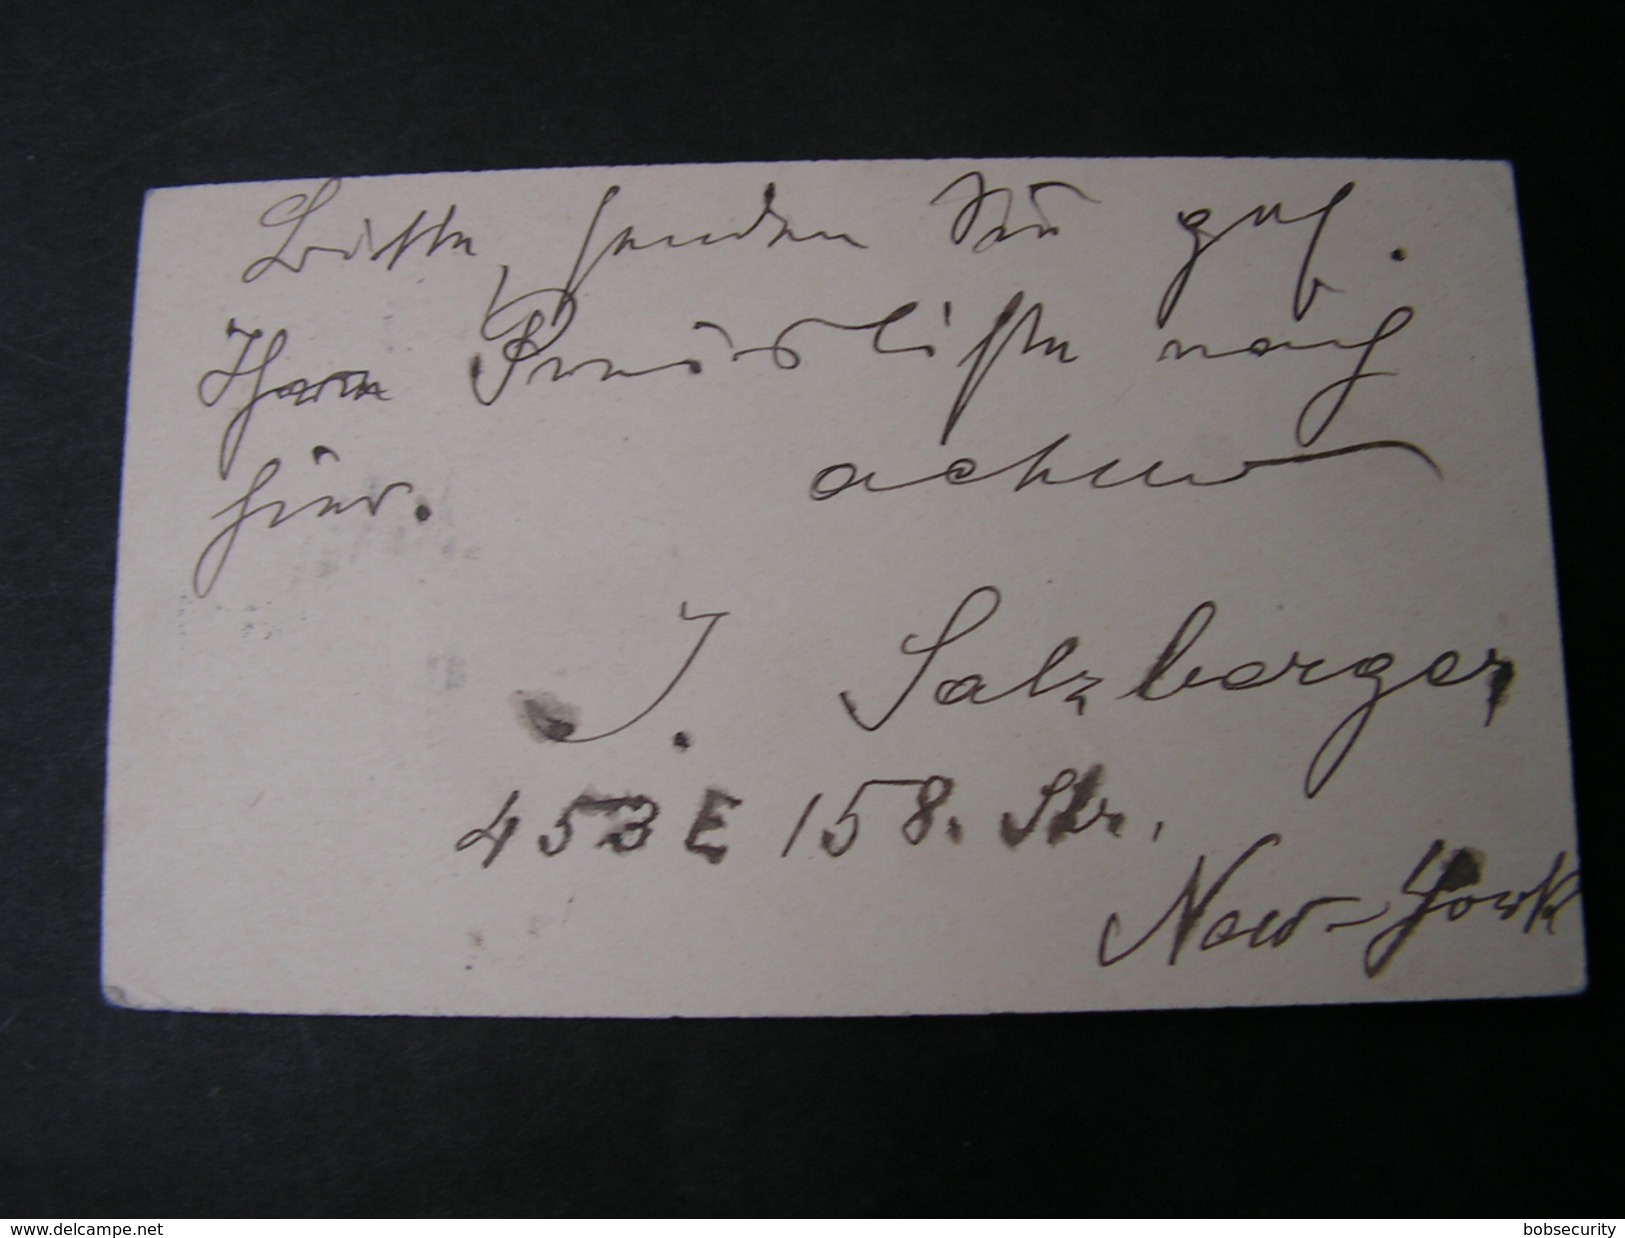 Bitte, senden Sie gefl.
Ihre Preisliste nach
hier. achw
J. Salzberger
453 E 158. Str.
New-York
www.delcampe.net bobsecurity